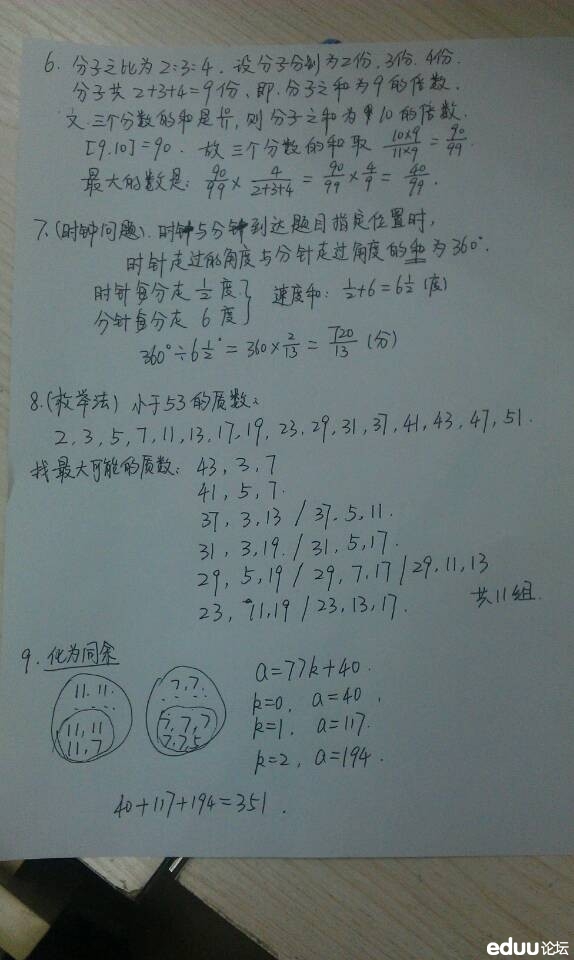 6. 分子之比为2:3:4. 设分子分别为2份, 3份, 4份.
分子共2+3+4=9份, 即: 分子之和为9的倍数.
又三个分数的和是10/11, 则分子之和为10的倍数.
[9.10]=90. 故三个分数的和取 10×9/11×9=90/99.
最大的数是: 90/99×4/2+3+4=90/99×4/9=40/99.
7.(时钟问题). 时针与分针到达题目指定位置时,
时针走过的角度与分针走过角度的和为360°.
时针每分走 1/2 度
分针每分走 6 度} 速度和: 1/2+6=6 1/2 (度)
360°÷6 1/2°=360×2/13=720/13 (分)
8.(枚举法) 小于53的质数:
2, 3, 5, 7, 11, 13, 17, 19, 23, 29, 31, 37, 41, 43, 47, 51.
找最大可能的质数: 43, 3, 7
41, 5, 7.
37, 3, 13 / 37, 5, 11.
31, 3, 19. / 31, 5, 17.
29, 5, 19 / 29, 7, 17 / 29, 11, 13
23, 11, 19 / 23, 13, 17. 共11组.
9. 化为同余
11. 11. 7, 7. a=77k+40.
11, 11 7, 7, 7 k=0, a=40,
11, 7 7, 7, 5 k=1, a=117.
k=2, a=194.
40+117+194=351.
eduu论坛